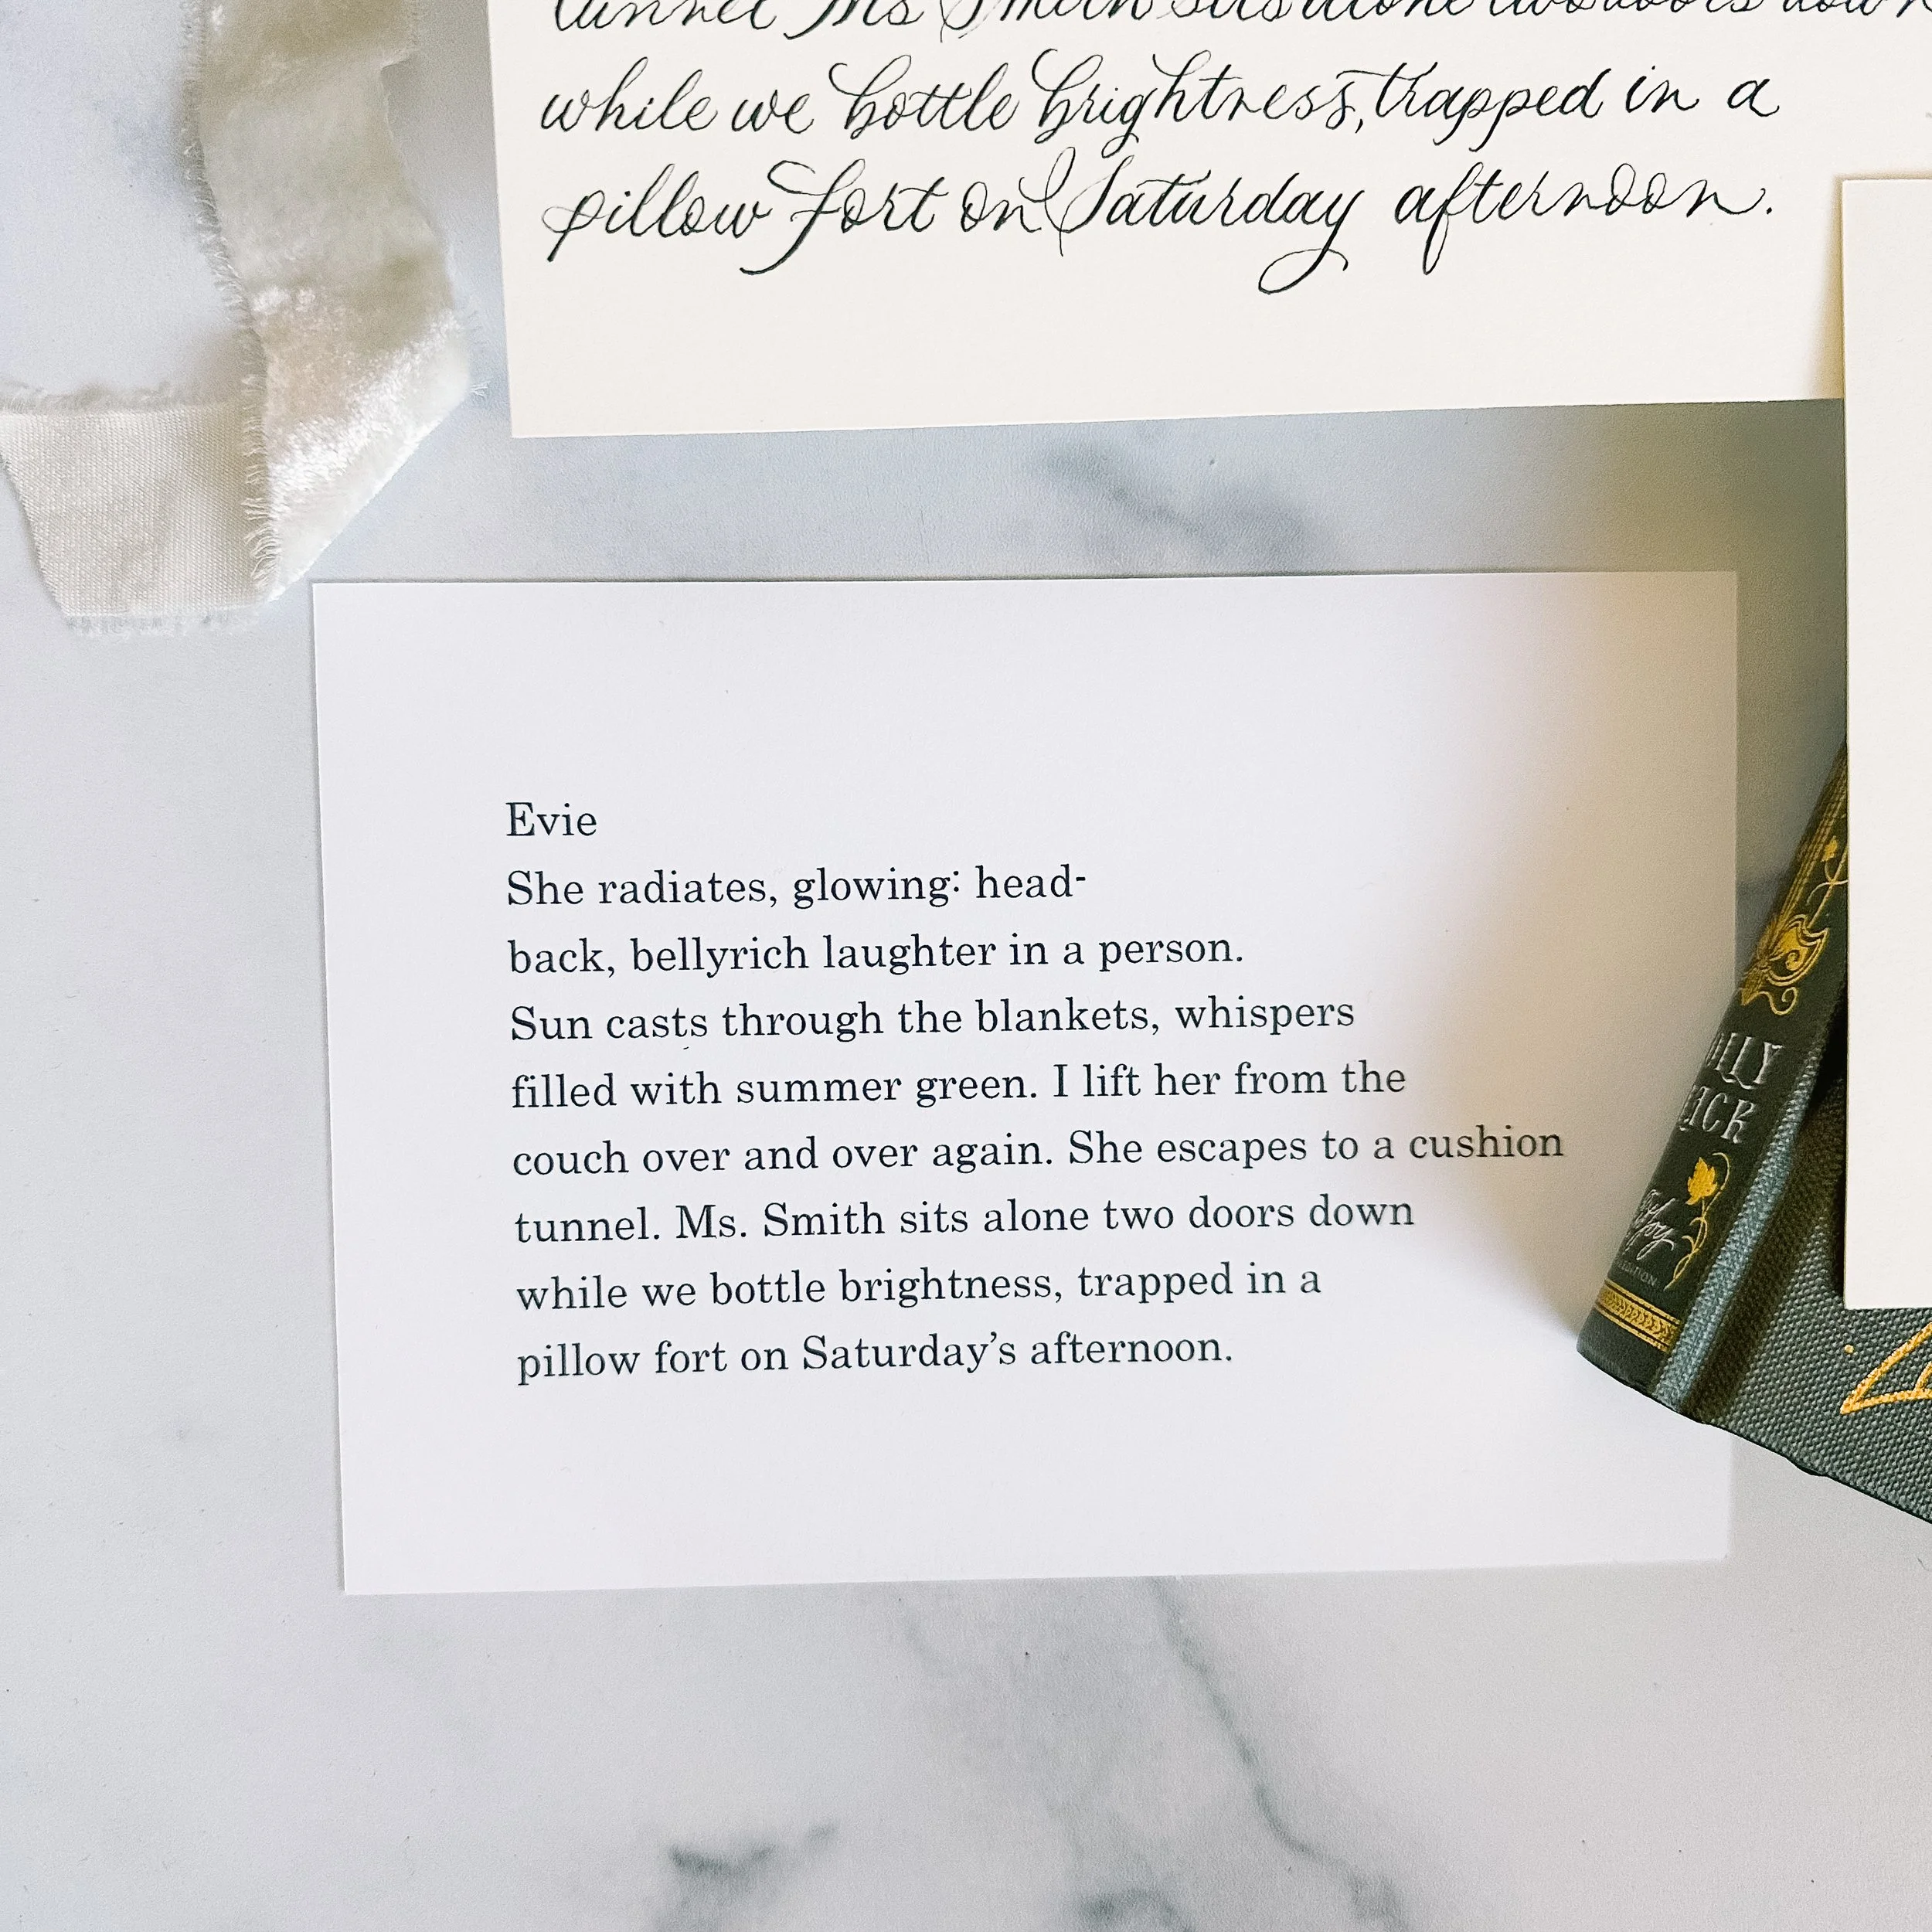 tunnel Ms Smith sits alone two doors down
while we bottle brightness, trapped in a
pillow fort on Saturday afternoon.
Evie
She radiates, glowing: head-
back, bellyrich laughter in a person.
Sun casts through the blankets, whispers
filled with summer green. I lift her from the
couch over and over again. She escapes to a cushion
tunnel. Ms. Smith sits alone two doors down
while we bottle brightness, trapped in a
pillow fort on Saturday's afternoon.